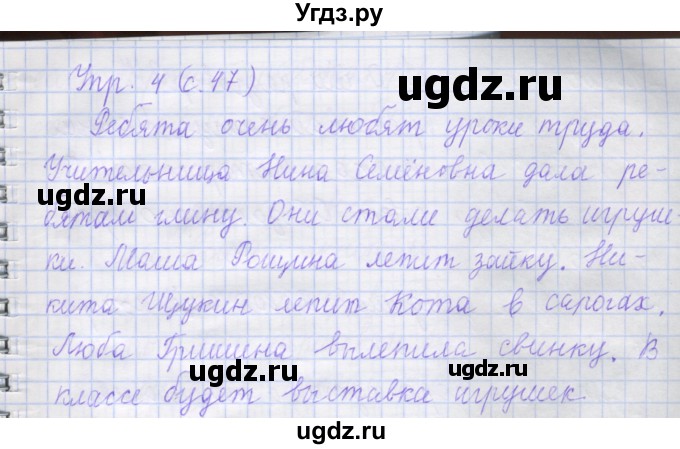 Угдз.ру
Упр. 4 (с. 47)
ugdz.ru
Ребята очень любят уроки труда.
Учительница Нина Семёновна дала ре-
ugdz.ru
ugdz.ru
бятам глину. Они стали делать игруш-
ки. Маша Рощина лепит зайку. Ни-
кита Щукин лепит Кота в сапогах.
Люба Гришина вылепила свинку. В
ugdz.ru
ugdz.ru
классе будет выставка игрушек
ugdz.ru